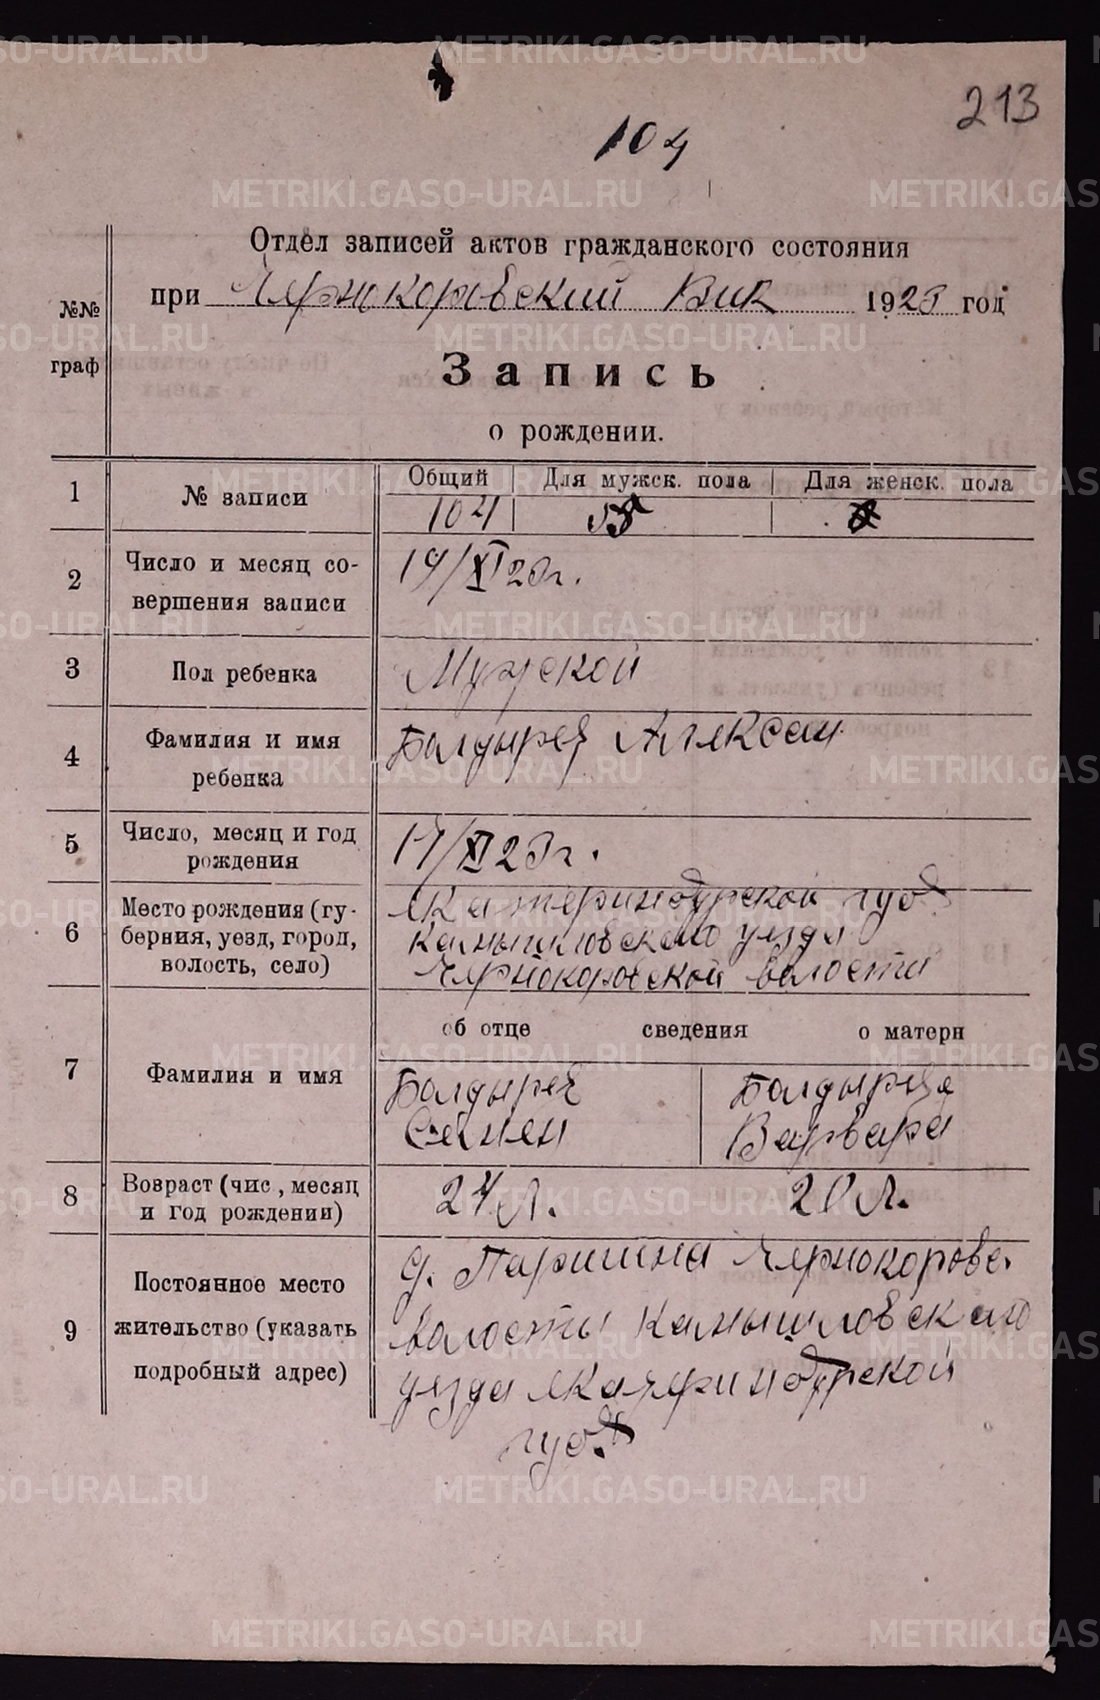 213
104
Отдел записей актов гражданского состояния
при Чернокоровский Вик 1923 год
№№ граф
Запись
о рождении.
1 № записи Общий Для мужск. пола Для женск. пола
104
2 Число и месяц совершения записи
19/XI 23 г.
3 Пол ребенка Мужской
4 Фамилия и имя ребенка Болдырев Алексан
5 Число, месяц и год рождения
17/XI 23 г.
6 Место рождения (губерния, уезд, город, волость, село)
Екатеринбургской губ
Камышловского уезда
Чернокоровской волости
об отце сведения о матери
7 Фамилия и имя
Болдырев Болдырева
Семен Варвара
8 Возраст (чис., месяц и год рождения) 24 л. 20 л.
9 Постоянное место жительство (указать подробный адрес)
д. Паршина Чернокоровс.
волости Камышловского
уезда Екатеринбургской
губ.
METRIKI.GASO-URAL.RU